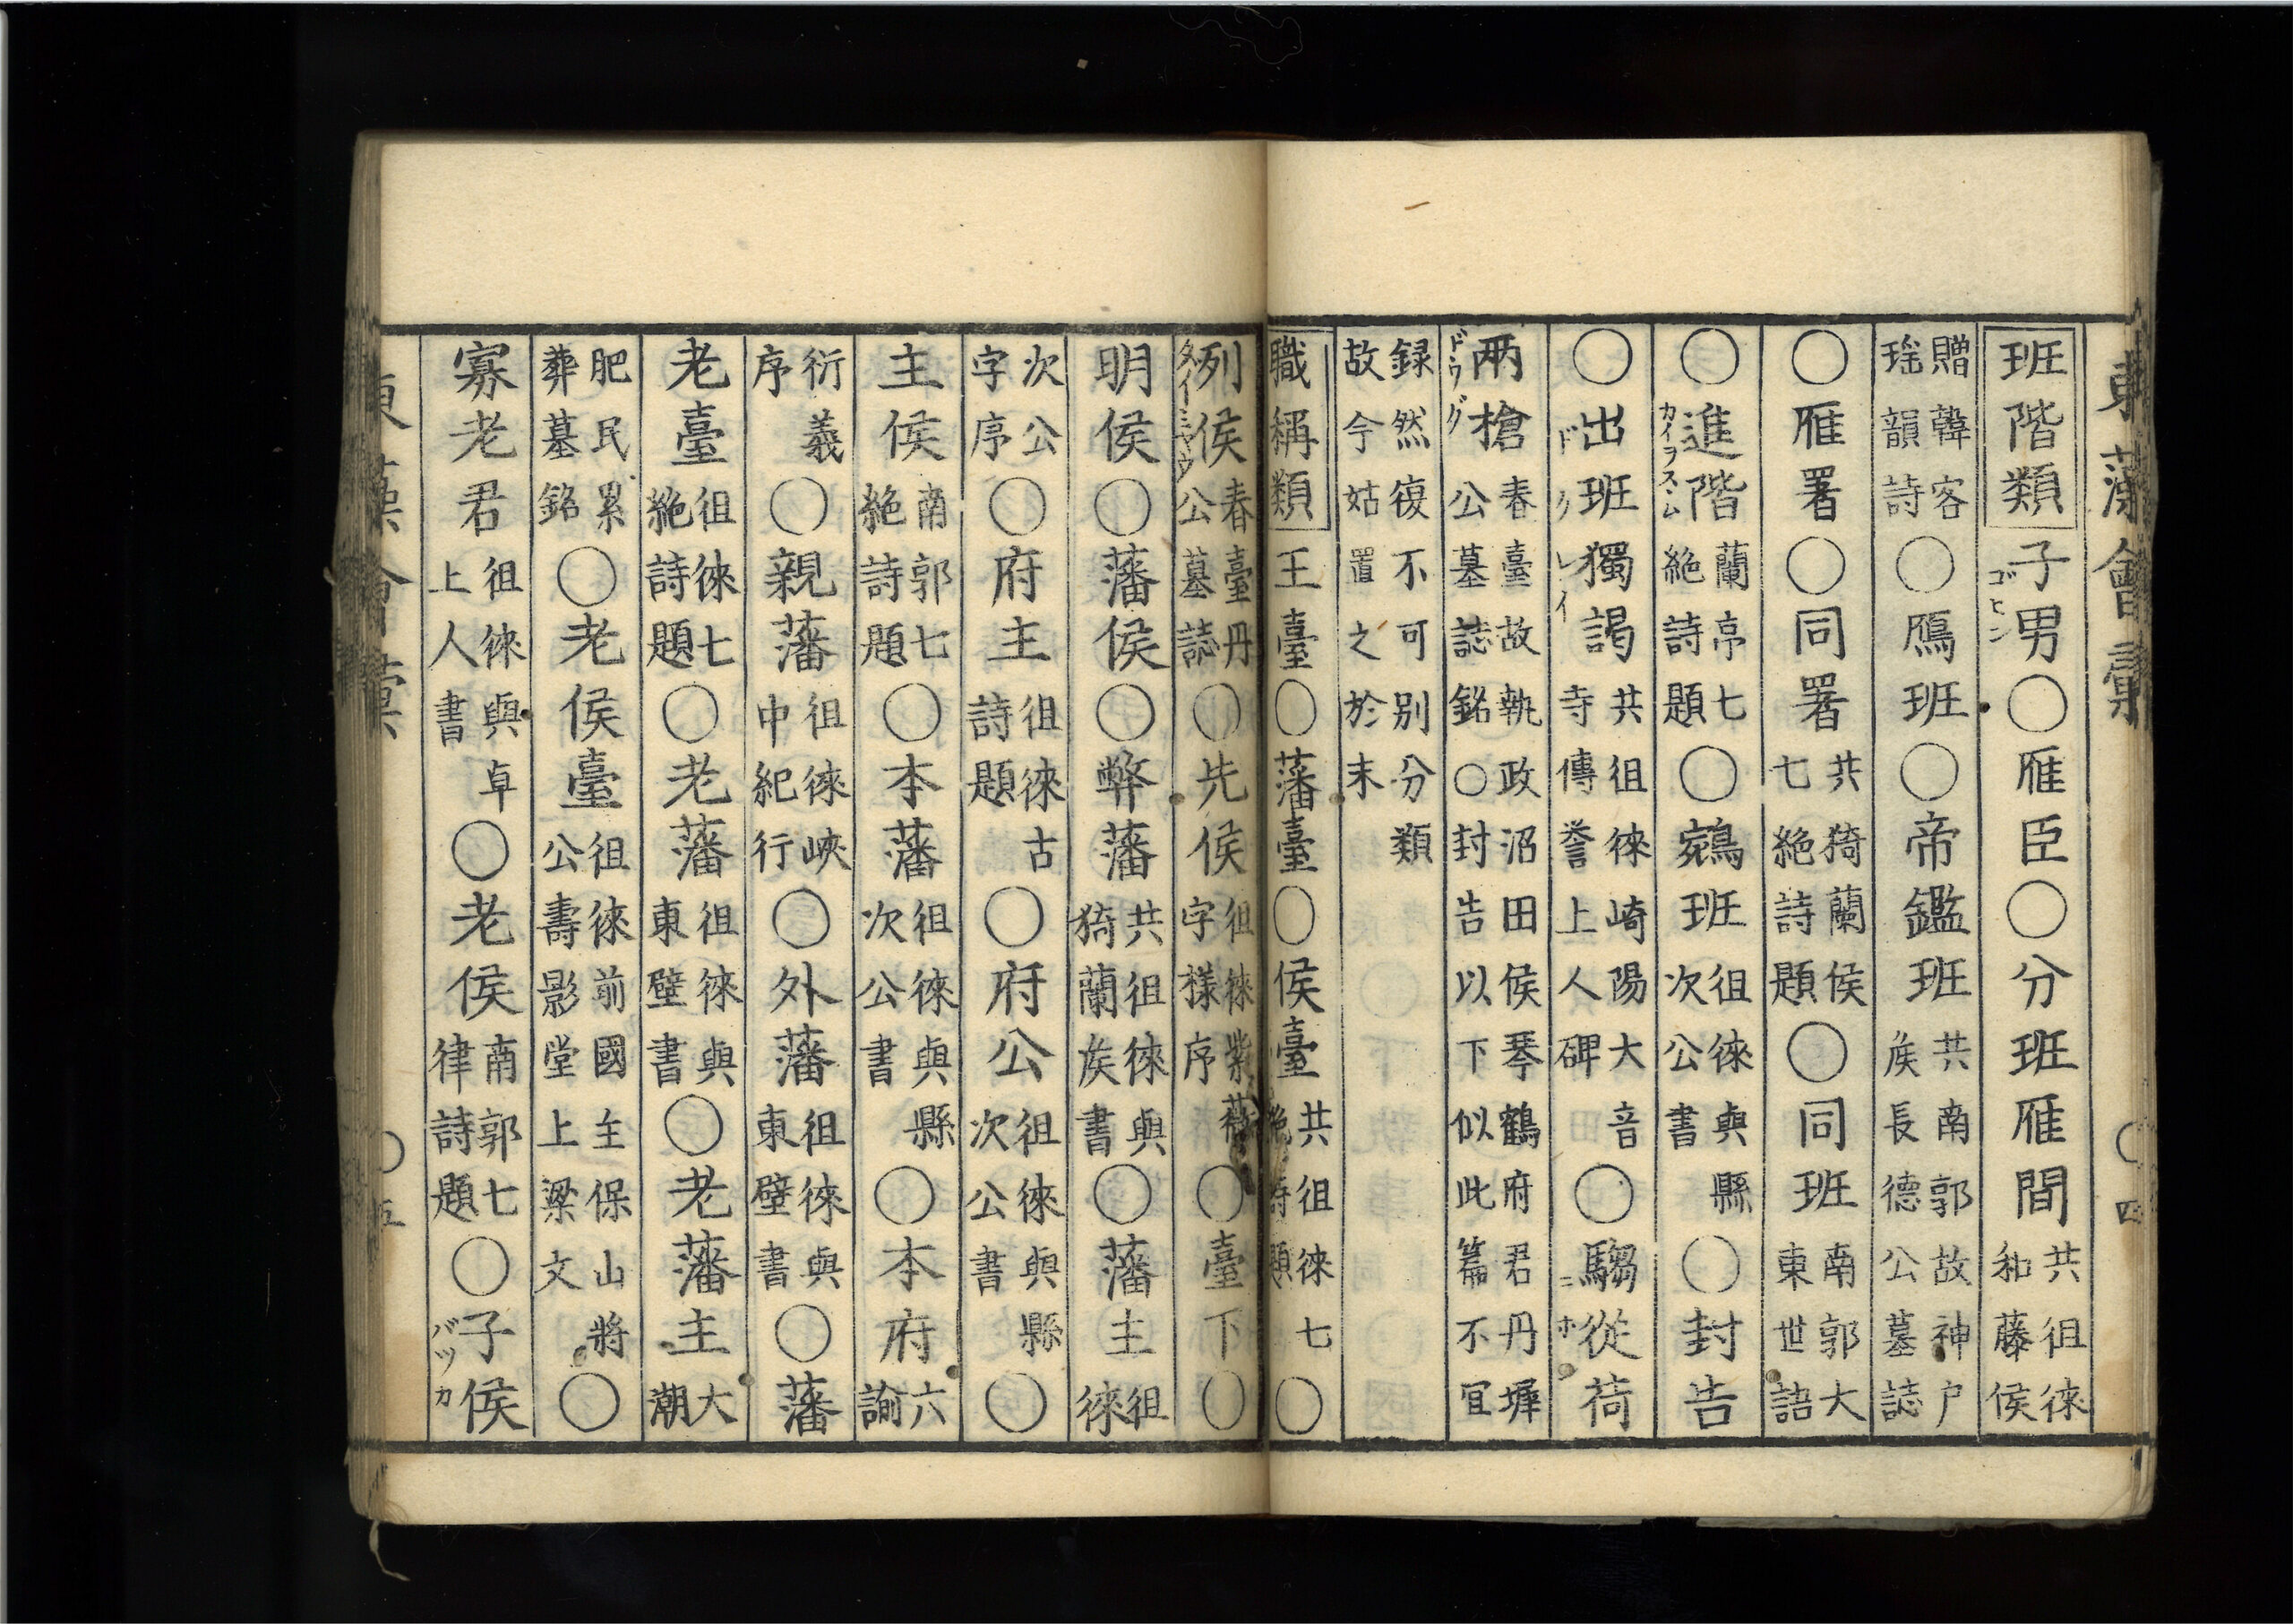 東藻會彙 〇四
班階類 子男ゴヒン〇雁臣〇分班雁間 共徂徠和藤侯
贈韓客瑤韻詩〇鴈班〇帝鑑班 共南郭故神戸矦長德公墓誌
〇雁署〇同署 共猗蘭侯七絶詩題〇同班 南郭大東世語
〇進階カイヲスヽム 蘭亭七絶詩題〇鵷班 徂徠與縣次公書〇封告
〇出班獨謁ドクレイ 共徂徠崎陽大音寺傳誉上人碑〇騶從荷ニホ
兩槍ドウグ 春臺故執政沼田侯琴鶴府君丹墀公墓誌銘〇封告以下似此篇不宜
録然復不可別分類故今姑置之於末
職稱類 王臺〇藩臺〇侯臺 共徂徠七絶詩題〇
列侯タイミヤウ 春臺丹公墓誌〇先侯 徂徠紫薇字樣序〇臺下〇
明侯〇藩侯〇弊藩 共徂徠與猗蘭矦書〇藩主 徂徠
次公字序〇府主 徂徠古詩題〇府公 徂徠與縣次公書〇
主侯 南郭七絶詩題〇本藩 徂徠與縣次公書〇本府 六諭
衍義序〇親藩 徂徠峽中紀行〇外藩 徂徠與東壁書〇藩
老臺 徂徠七絶詩題〇老藩 徂徠與東壁書〇老藩主 大潮
肥民累葬墓銘〇老侯臺 徂徠前國主保山將公壽影堂上梁文〇
寡老君 徂徠與卓上人書〇老侯 南郭七律詩題〇子侯バツカ
東藻會彙 〇五